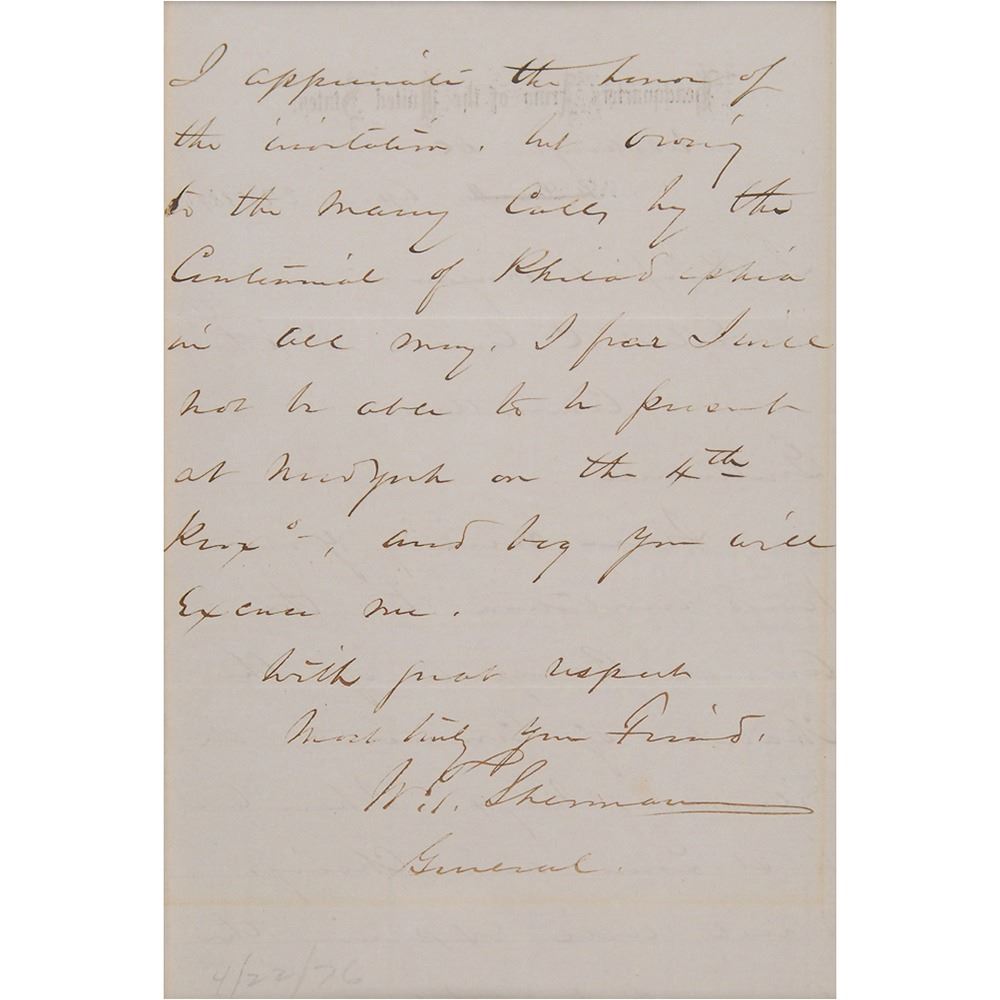 I appreciate the honor of
the invitation, but owing
to the many Calls by the
Centennial of Philadelphia
in all May, I fear I will
not be able to be present
at New York on the 4th
Proxo, and beg you will
Excuse me.
With great respect
Most truly your Friend.
W.T. Sherman
General.
4/22/76